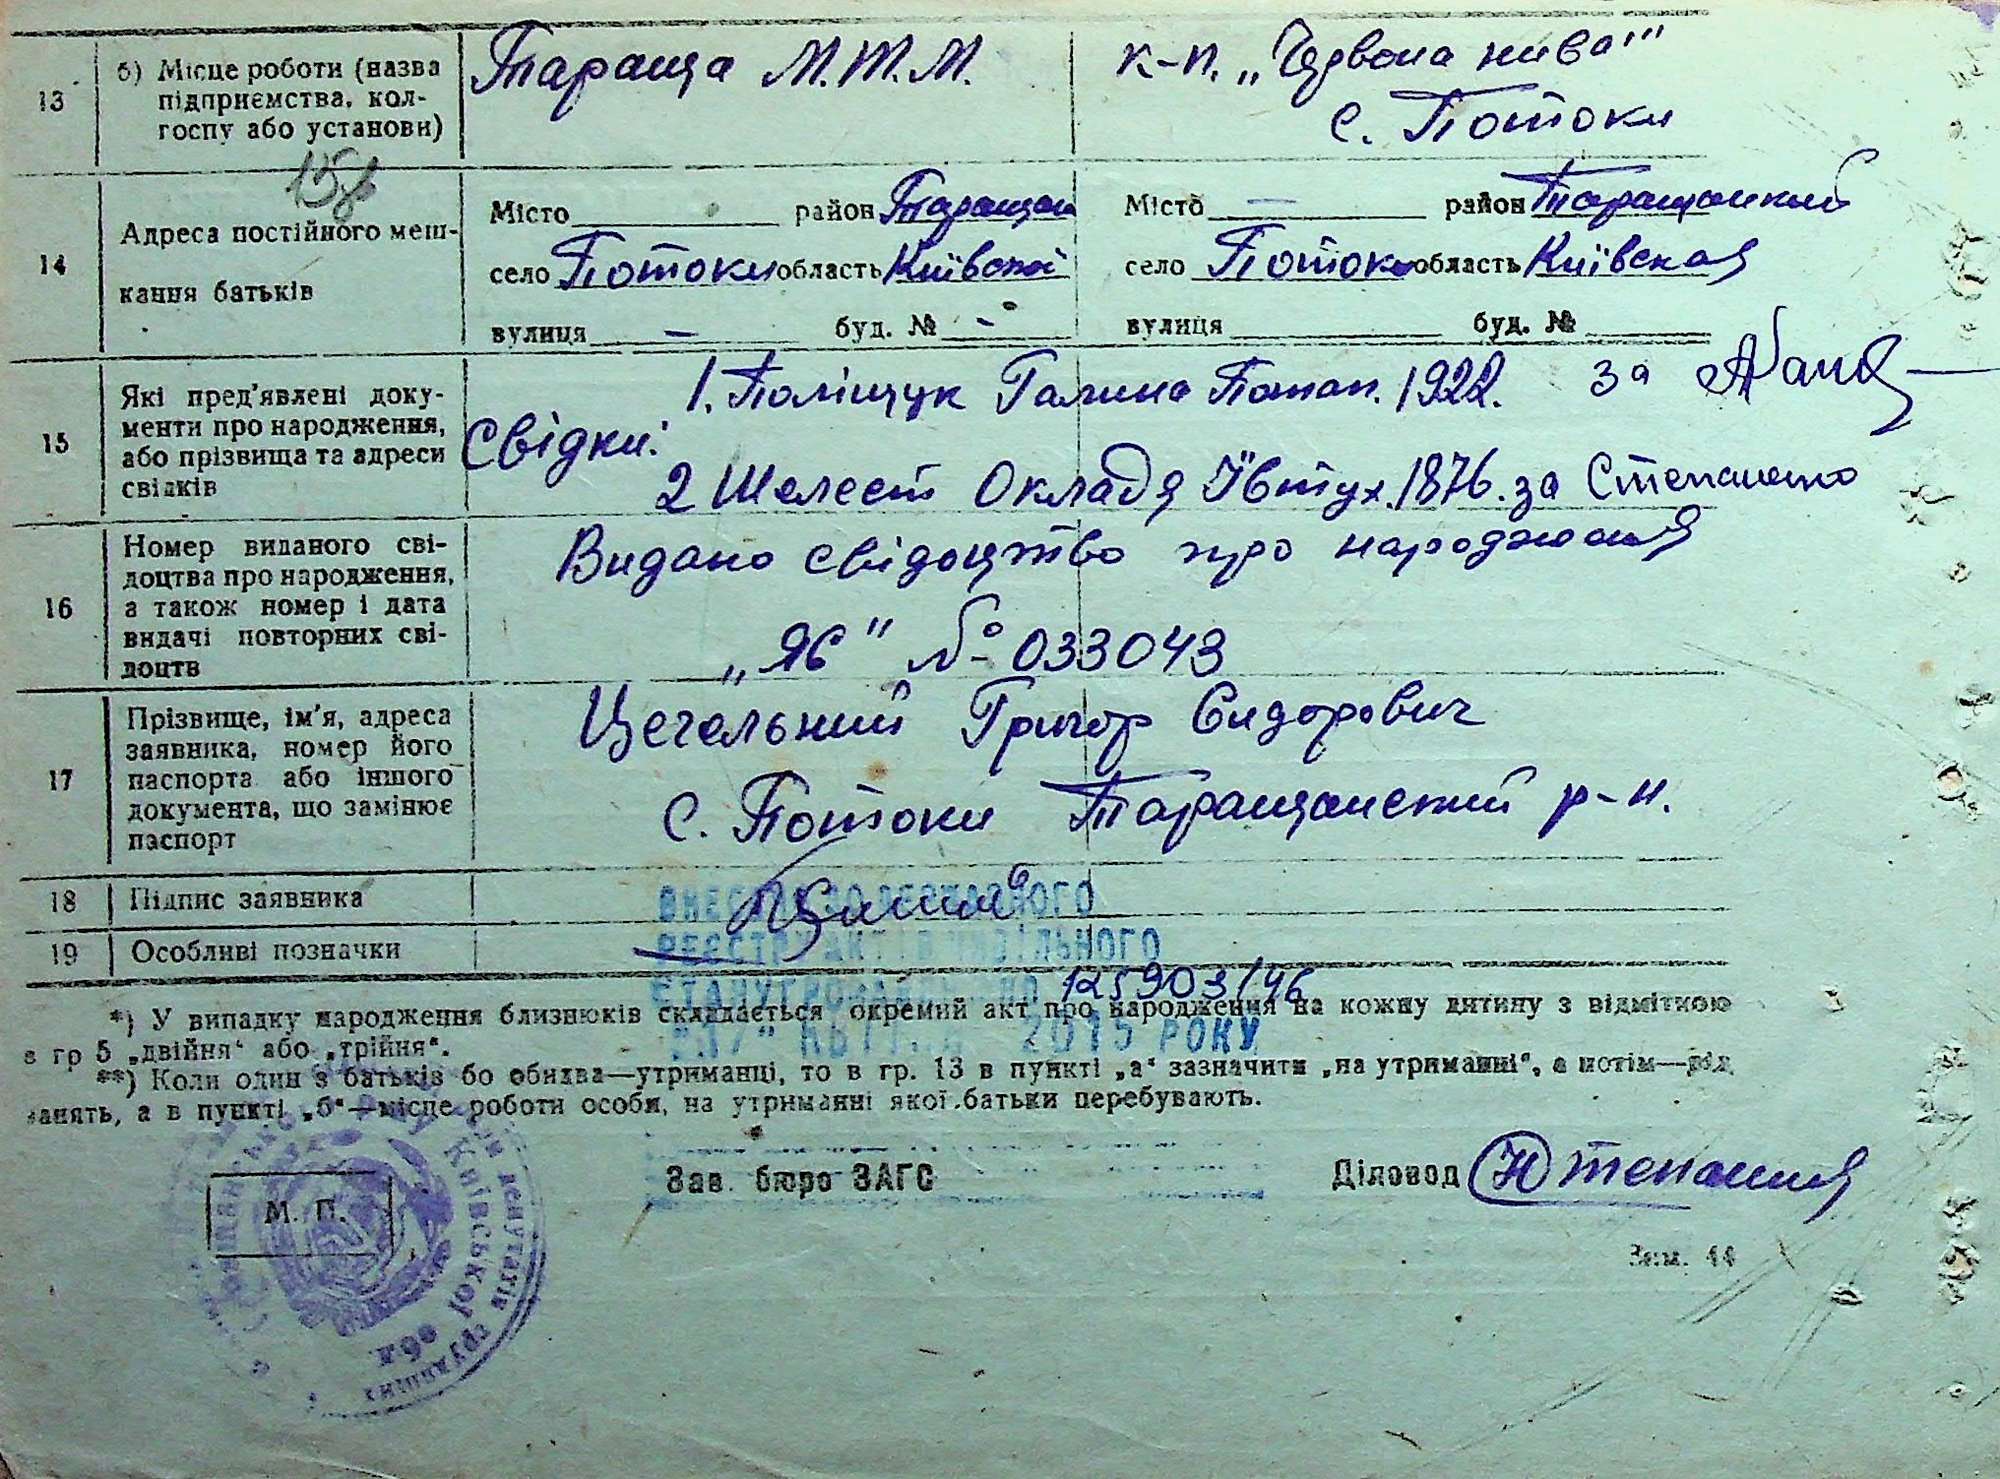 13 б) Місце роботи (назва підприємства, колгоспу або установи) Тараща М.Т.М. к-п. „Червона нива"
с. Потоки
14 Адреса постійного мешкання батьків
Місто район Таращан Місто — район Таращанский
село Потоки область Київской село Потоки область Київская
вулиця — буд. № - вулиця буд. №
15 Які пред'явлені документи про народження, або прізвища та адреси свідків
1. Поліщук Галина Потап. 1922. за
Свідки:
2 Шелест Окладя Ївтух. 1876. за Степаненко
16 Номер виданого свідоцтва про народження, а також номер і дата видачі повторних свідоцтв
Видано свідоцтво про народження
„ЯБ" № 033043
17 Прізвище, ім'я, адреса заявника, номер його паспорта або іншого документа, що замінює паспорт
Цегельний Григор Сидорович
с. Потоки Таращанский р-н.
18 Підпис заявника
19 Особливі позначки
ВНЕСЕНО ДО ДЕРЖАВНОГО
РЕЄСТРУ АКТІВ ЦИВІЛЬНОГО
СТАНУ ГРОМАДЯН ПО 125903/46
„17" КВІТНЯ 2015 РОКУ
*) У випадку народження близнюків складається окремий акт про народження на кожну дитину з відміткою
в гр 5 „двійня" або „трійня".
**) Коли один з батьків бо обидва—утриманці, то в гр. 13 в пункті „а" зазначити „на утриманні", а потім—рід
занять, а в пункті „б"—місце роботи особи, на утриманні якої батьки перебувають.
М. П.
Зав. бюро ЗАГС Діловод
депутатів трудящих
Київської обл
Зам. 44